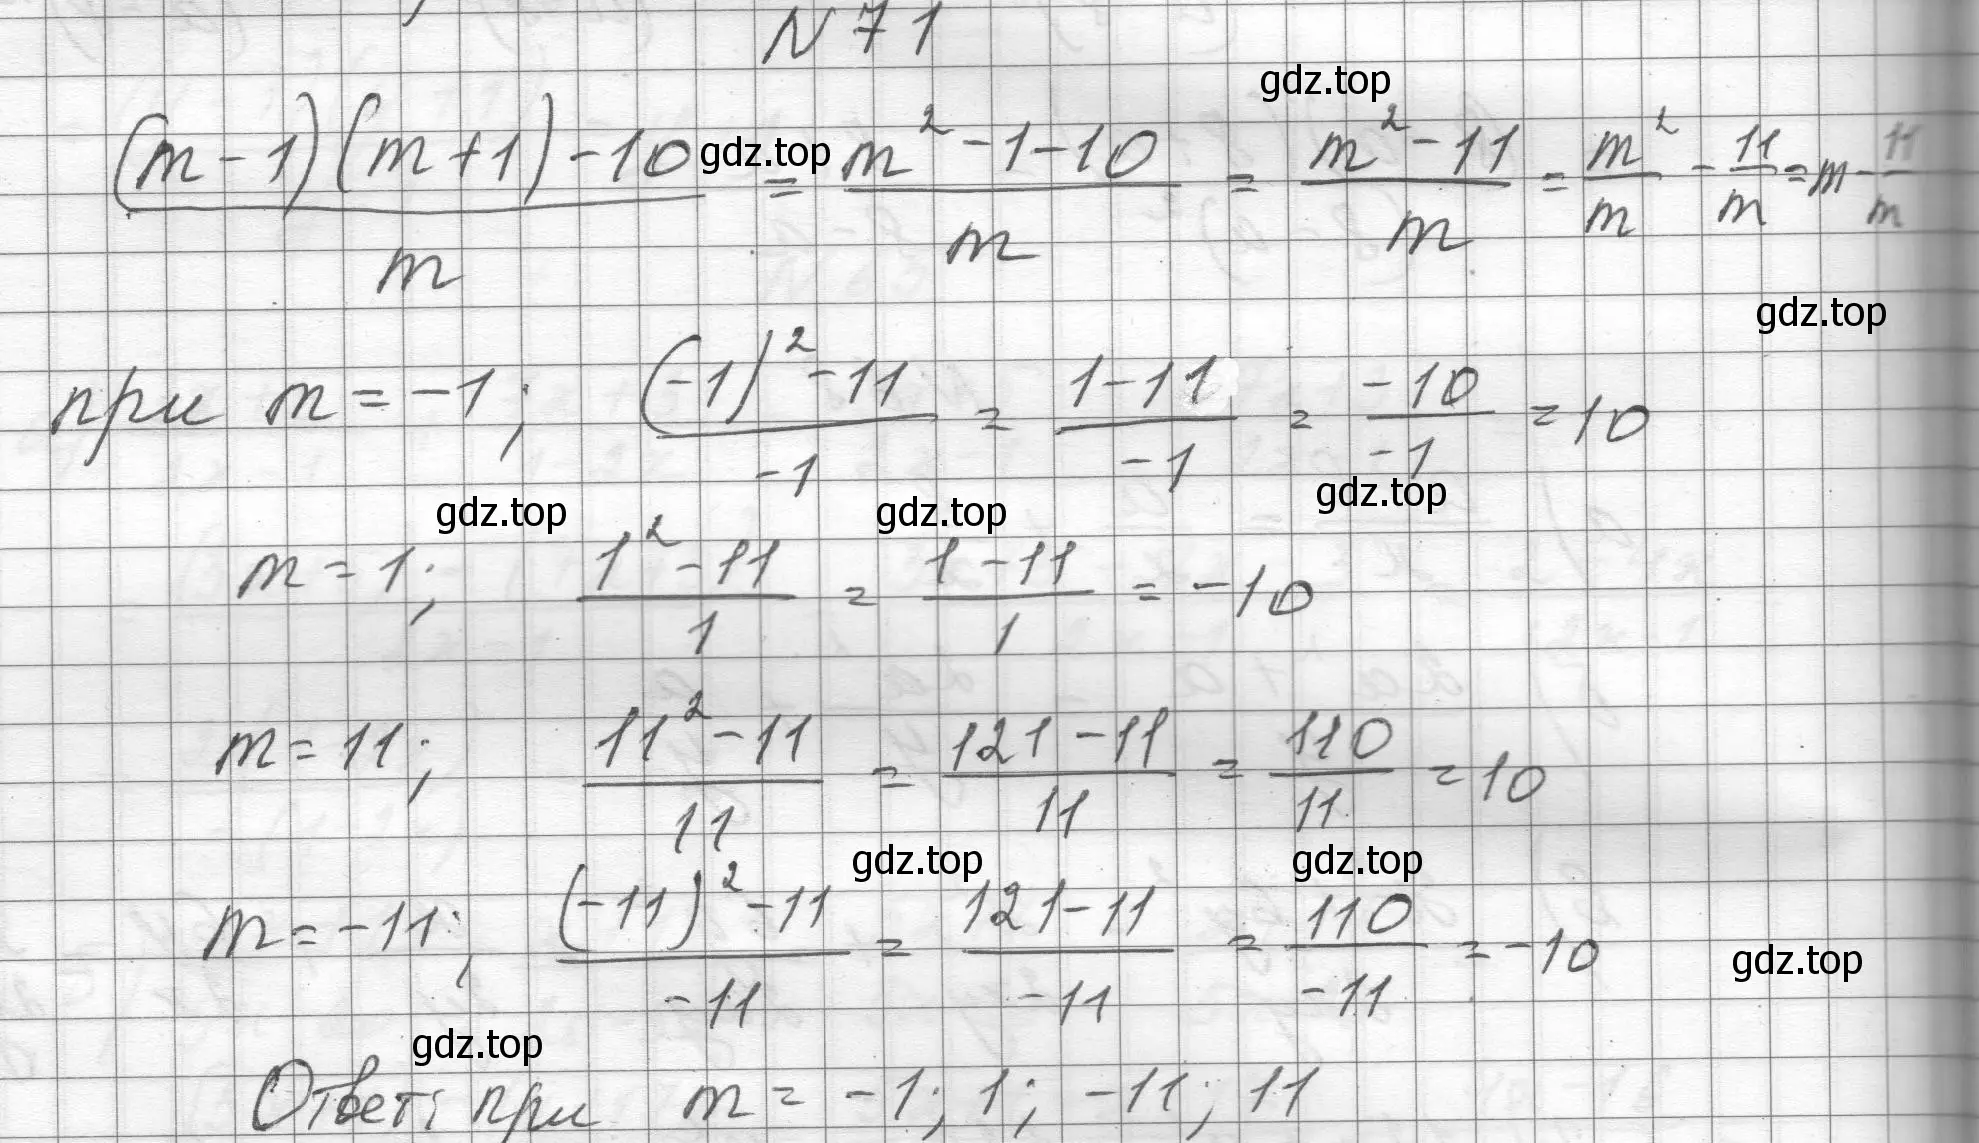 N 71
gdz.top
((m-1)(m+1)-10)/m = (m²-1-10)/m = (m²-11)/m = m²/m - 11/m = m - 11/m
gdz.top
gdz.top
при m = -1; ((-1)²-11)/-1 = (1-11)/-1 = -10/-1 = 10
gdz.top gdz.top gdz.top
m = 1; (1²-11)/1 = (1-11)/1 = -10
m = 11; (11²-11)/11 = (121-11)/11 = 110/11 = 10
gdz.top gdz.top
m = -11; ((-11)²-11)/-11 = (121-11)/-11 = 110/-11 = -10
gdz.top
gdz.top
Ответ: при m = -1; 1; -11; 11